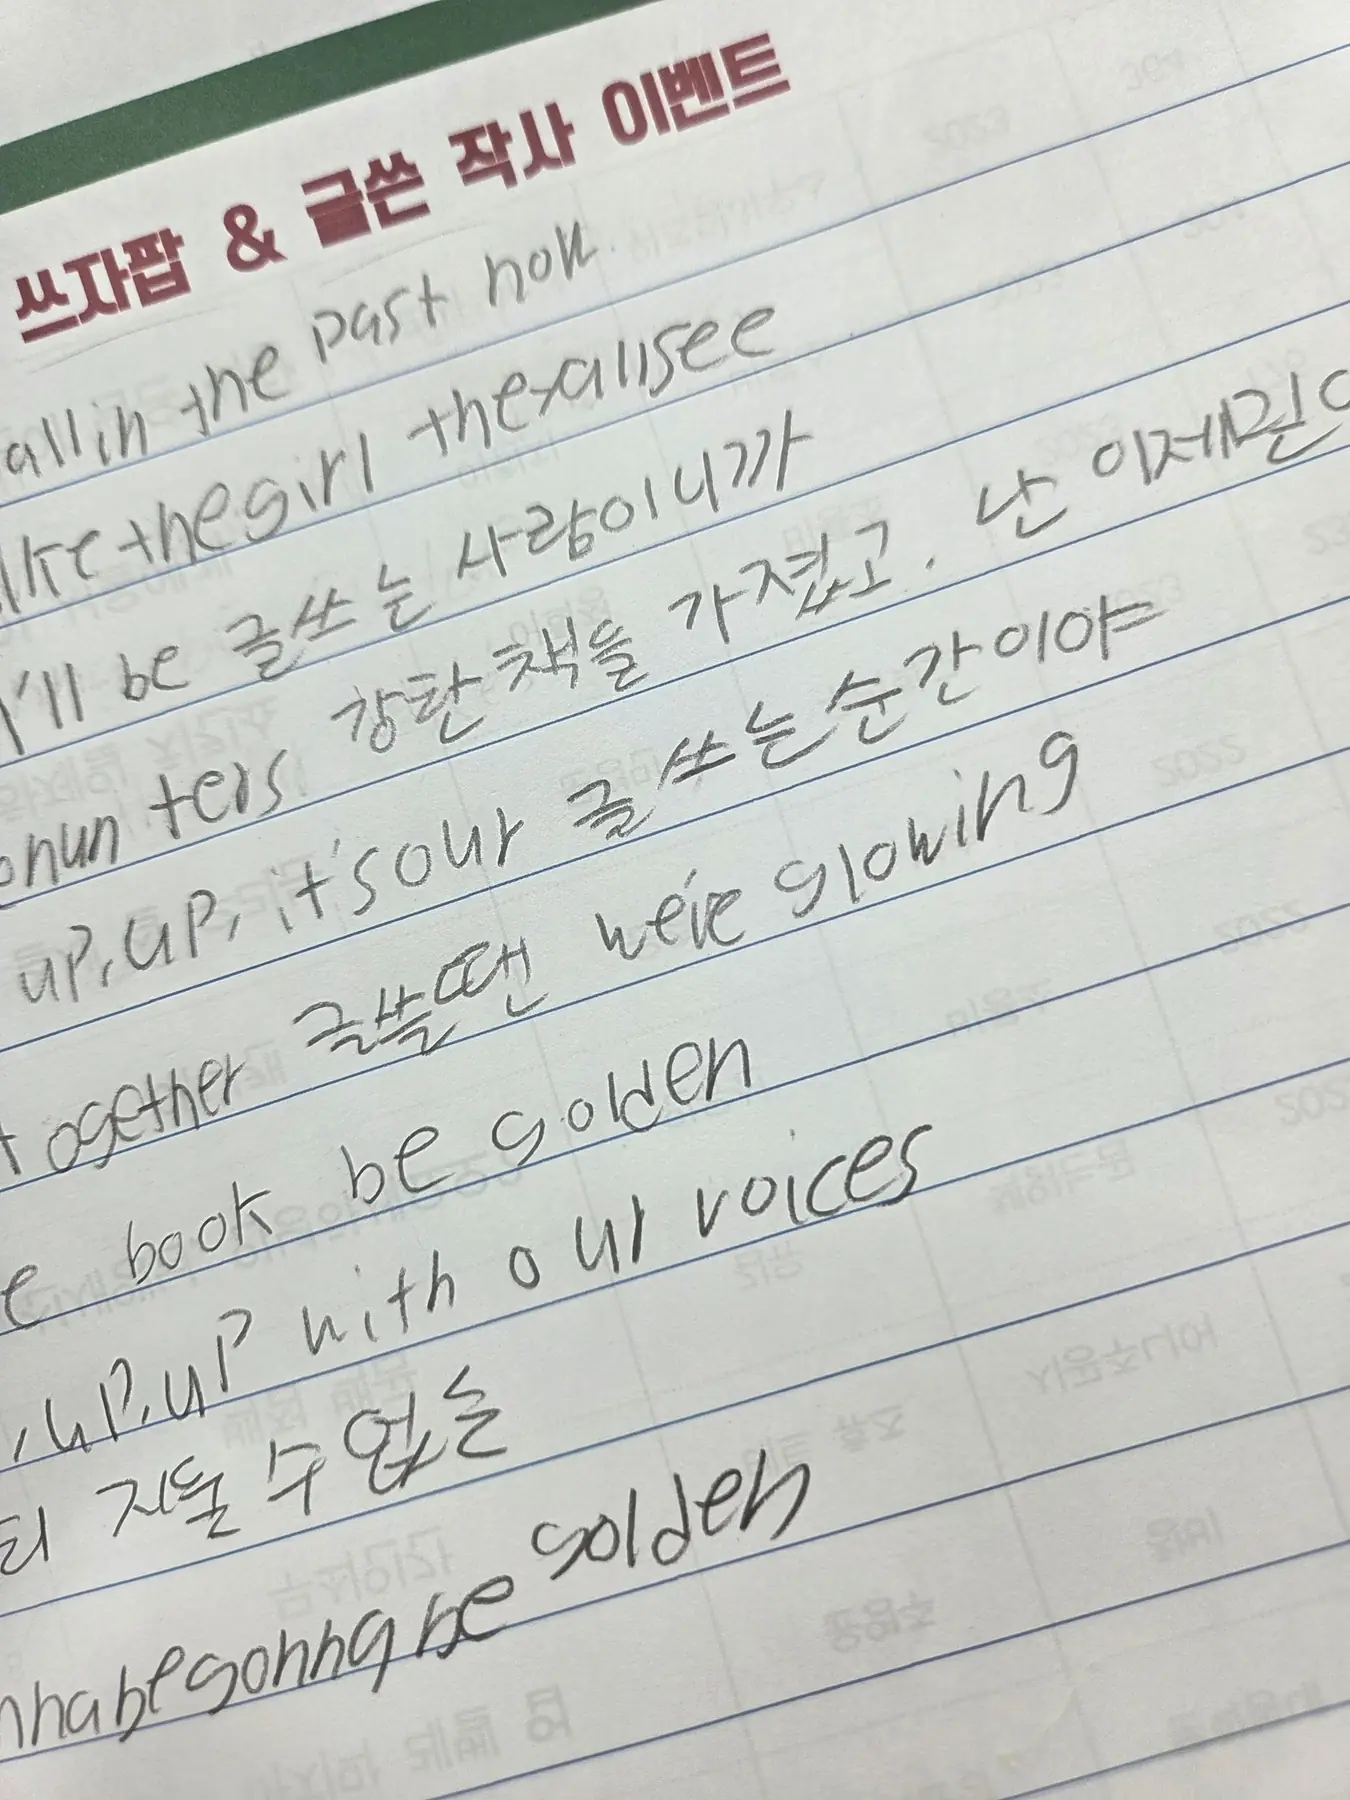 쓰자팝 & 글쓴 작사 이벤트
all in the past now
ike the girl they all see
I'll be 글쓰는 사람이니까
hunters 강탄책을 가졌고. 난 이제
up, up, it's our 글쓰는 순간이야
together 글쓸땐 we're glowing
e book be golden
, up, up with our voices
지울 수 없는
nna be gonna be golden